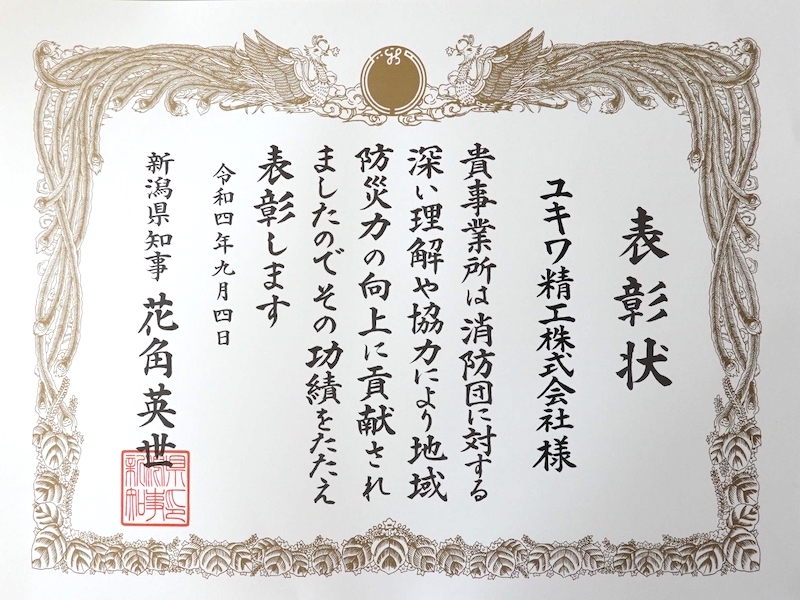 表彰状
ユキワ精工株式会社様
貴事業所は消防団に対する
深い理解や協力により地域
防災力の向上に貢献され
ましたのでその功績をたたえ
表彰します
令和四年九月四日
新潟県知事 花角英世
新潟県知事之印